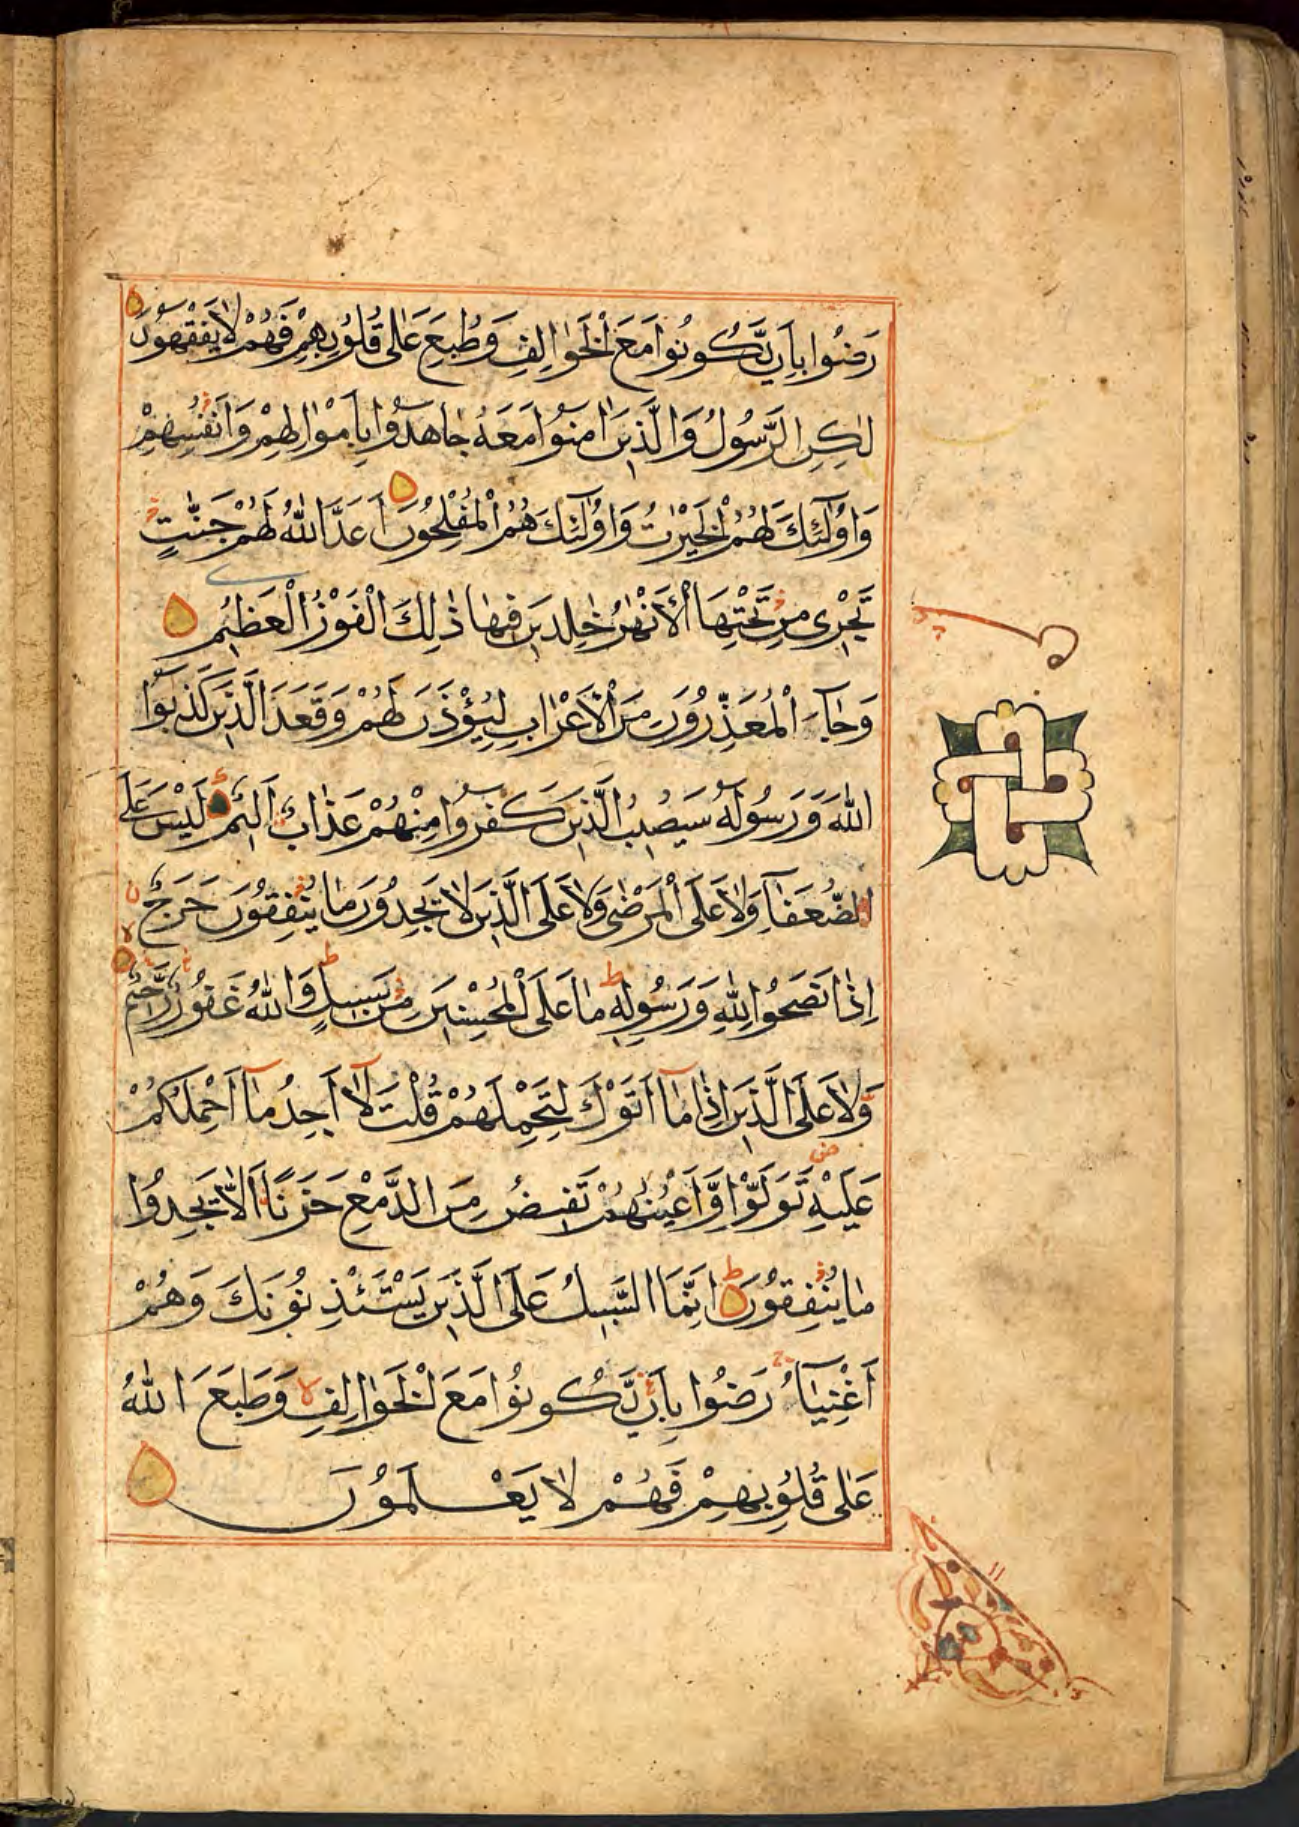 رَضُوا بِاَنْ يَّكُونُوا مَعَ الْخَوَالِفِ وَطُبِعَ عَلٰى قُلُوبِهِمْ فَهُمْ لَا يَفْقَهُونَ
لٰكِنِ الرَّسُولُ وَالَّذِينَ اٰمَنُوا مَعَهُ جَاهَدُوا بِاَمْوَالِهِمْ وَاَنْفُسِهِمْ
وَاُولٰٓئِكَ لَهُمُ الْخَيْرَاتُ وَاُولٰٓئِكَ هُمُ الْمُفْلِحُونَ اَعَدَّ اللّٰهُ لَهُمْ جَنّٰتٍ
تَجْرِى مِنْ تَحْتِهَا الْاَنْهٰرُ خٰلِدِينَ فِيهَا ذٰلِكَ الْفَوْزُ الْعَظِيمُ
وَجَآءَ الْمُعَذِّرُونَ مِنَ الْاَعْرَابِ لِيُؤْذَنَ لَهُمْ وَقَعَدَ الَّذِينَ كَذَبُوا
اللّٰهَ وَرَسُولَهُ سَيُصِيبُ الَّذِينَ كَفَرُوا مِنْهُمْ عَذَابٌ اَلِيمٌ لَيْسَ عَلَى
الضُّعَفَآءِ وَلَا عَلَى الْمَرْضٰى وَلَا عَلَى الَّذِينَ لَا يَجِدُونَ مَا يُنْفِقُونَ حَرَجٌ
اِذَا نَصَحُوا لِلّٰهِ وَرَسُولِهِ مَا عَلَى الْمُحْسِنِينَ مِنْ سَبِيلٍ وَاللّٰهُ غَفُورٌ رَّحِيمٌ
وَّلَا عَلَى الَّذِينَ اِذَا مَآ اَتَوْكَ لِتَحْمِلَهُمْ قُلْتَ لَآ اَجِدُ مَآ اَحْمِلُكُمْ
عَلَيْهِ تَوَلَّوْا وَّاَعْيُنُهُمْ تَفِيضُ مِنَ الدَّمْعِ حَزَنًا اَلَّا يَجِدُوا
مَا يُنْفِقُونَ اِنَّمَا السَّبِيلُ عَلَى الَّذِينَ يَسْتَئْذِنُونَكَ وَهُمْ
اَغْنِيَآءُ رَضُوا بِاَنْ يَّكُونُوا مَعَ الْخَوَالِفِ وَطَبَعَ اللّٰهُ
عَلٰى قُلُوبِهِمْ فَهُمْ لَا يَعْلَمُونَ